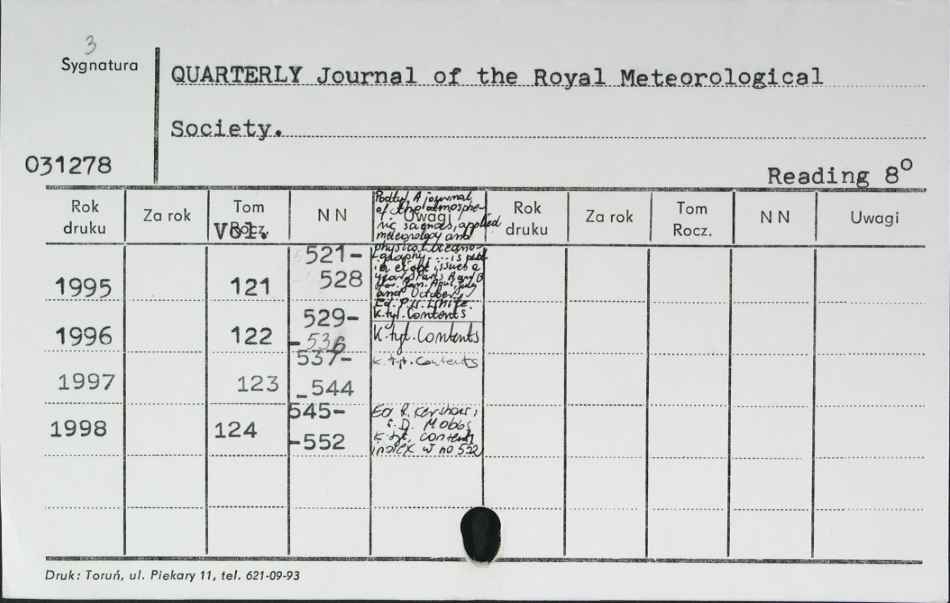 3
Sygnatura
QUARTERLY Journal of the Royal Meteorological
Society.
031278
Reading 8°
Rok druku Za rok Tom Rocz. Vol. N N Uwagi Rok druku Za rok Tom Rocz. N N Uwagi
Podtyt. A journal
of the atmosphe-
ric sciences, applied
meteorology and
physical oceano-
graphy. ... is publ.
in eight issues a
year: Parts A and B
Jan. Apr. July
and October
Ed. P.W. White.
1995 121 521-528 K.tyt. Contents
1996 122 529-536 K.tyt. Contents
1997 123 537-544 K.tyt. Contents
1998 124 545-552 Ed R. Kershaw,
S.D. Mobbs
K.tyt. contents
index w no 552
Druk: Toruń, ul. Piekary 11, tel. 621-09-93